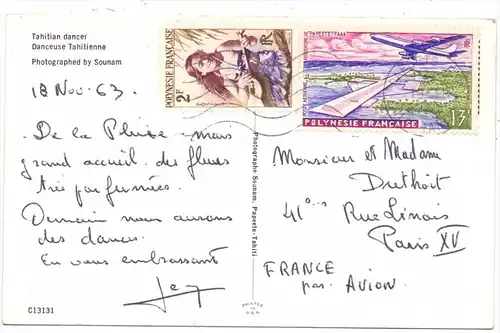 Tahitian dancer
Danseuse Tahitienne
Photographed by Sounam
18 Nov. 63.
De la Pluie - mais
grand accueil. des fleurs
très parfumées.
Demain nous aurons
des danses.
En vous embrassant
C13131
Photographe Sounam, Papeete-Tahiti
PRINTED IN U.S.A.
POLYNÉSIE FRANÇAISE
2F
RF
POSTE AÉRIENNE
13F
POLYNESIE FRANÇAISE
Monsieur et Madame
Duthoit
41 Rue Linois
Paris XV
FRANCE
par Avion.